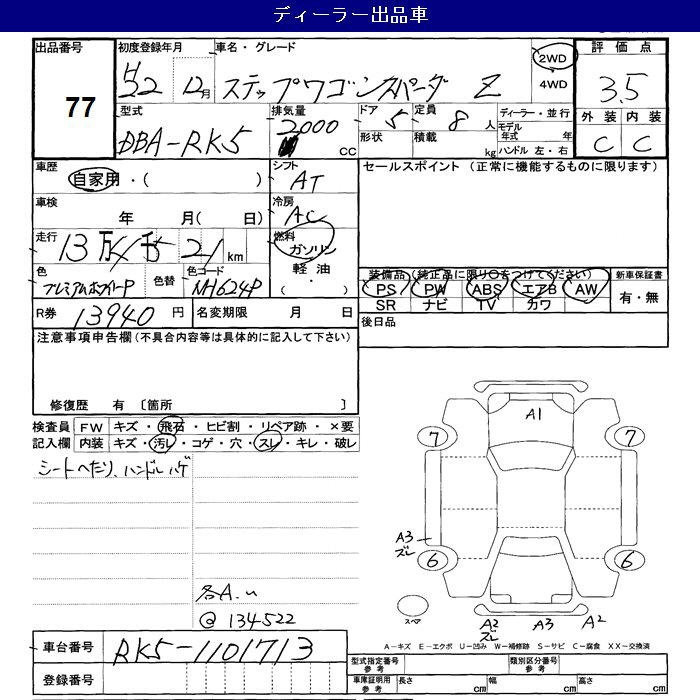 ディーラー出品車
出品番号 初度登録年月 車名・グレード 2WD 評価点
77 H22 12月 ステップワゴンスパーダ Z 4WD 3.5
型式 排気量 ドア 定員 ディーラー・並行 外装 内装
DBA-RK5 2000 CC 5 8人 モデル年式 年 C C
形状 積載 kg ハンドル 左・右
車歴 シフト セールスポイント (正常に機能するものに限ります)
自家用・( ) AT
車検 冷房
年 月( 日) AC
走行 燃料
13万 千 21 km ガソリン
色 色替 色コード 軽油 装備品(純正品に限り○をつけてください) 新車保証書
プレミアムホワイトP NH624P ( ・ ) PS PW ABS エアB AW 有・無
SR ナビ TV カワ
R券 13940円 名変期限 月 日 後日品
注意事項申告欄(不具合内容等は具体的に記入して下さい)
修復歴 有 〔箇所 〕
検査員 FW キズ・飛石・ヒビ割・リペア跡・×要
記入欄 内装 キズ・汚レ・コゲ・穴・スレ・キレ・破レ
シートへたり、ハンドルハゲ
A1
7 7
A3
ズレ
6 6
各A.u
@ 134522
スペア
A2 A3 A2
ズレ
A-キズ E-エクボ U-凹み W-補修跡 S-サビ C-腐食 XX-交換済
車台番号 RK5-1101713
型式指定番号 参考 類別区分番号 参考
登録番号
車庫証明用 参考 長さ cm 幅 cm 高さ cm